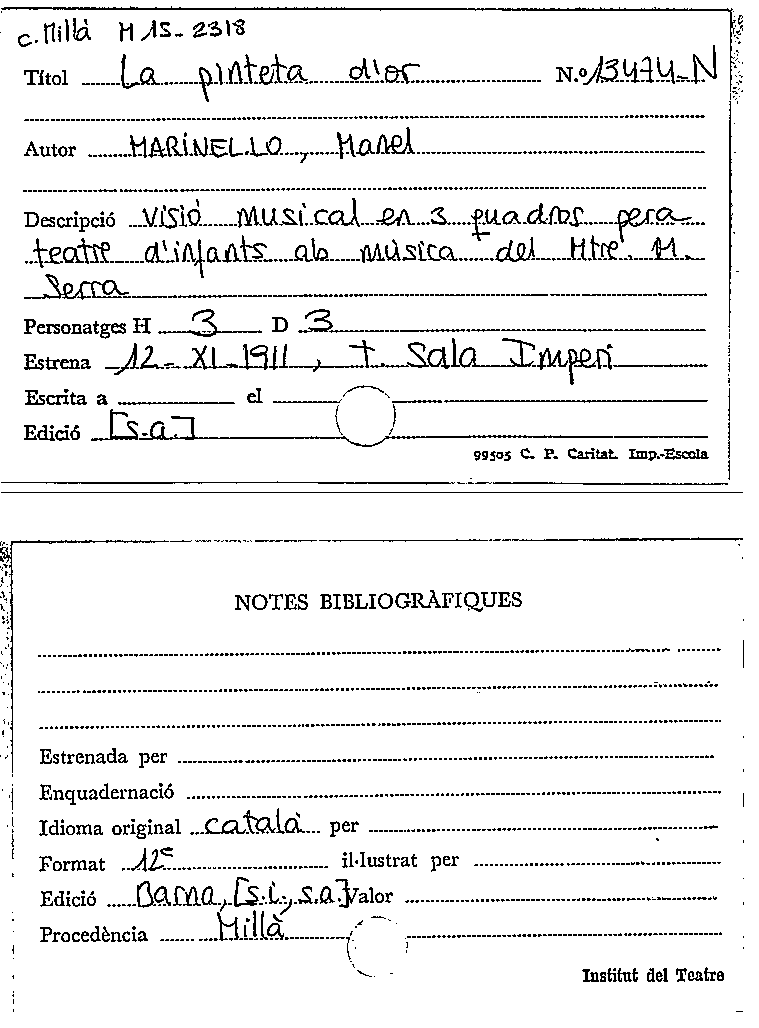 c. Millà M 15-2318
Títol La pinteta d'or N.º 13474-N
Autor MARINEL.LO, Manel
Descripció visió musical en 3 quadros pera
teatre d'infants ab música del Mtre. M.
Serra
Personatges H 3 D 3
Estrena 12-XI-1911, t. Sala Imperi
Escrita a el
Edició [s.a.]
99505 C. P. Caritat. Imp.-Escola
NOTES BIBLIOGRÀFIQUES
Estrenada per
Enquadernació
Idioma original català per
Format 12º il·lustrat per
Edició Barna, [s.i., s.a.] Valor
Procedència Millà
Institut del Teatre